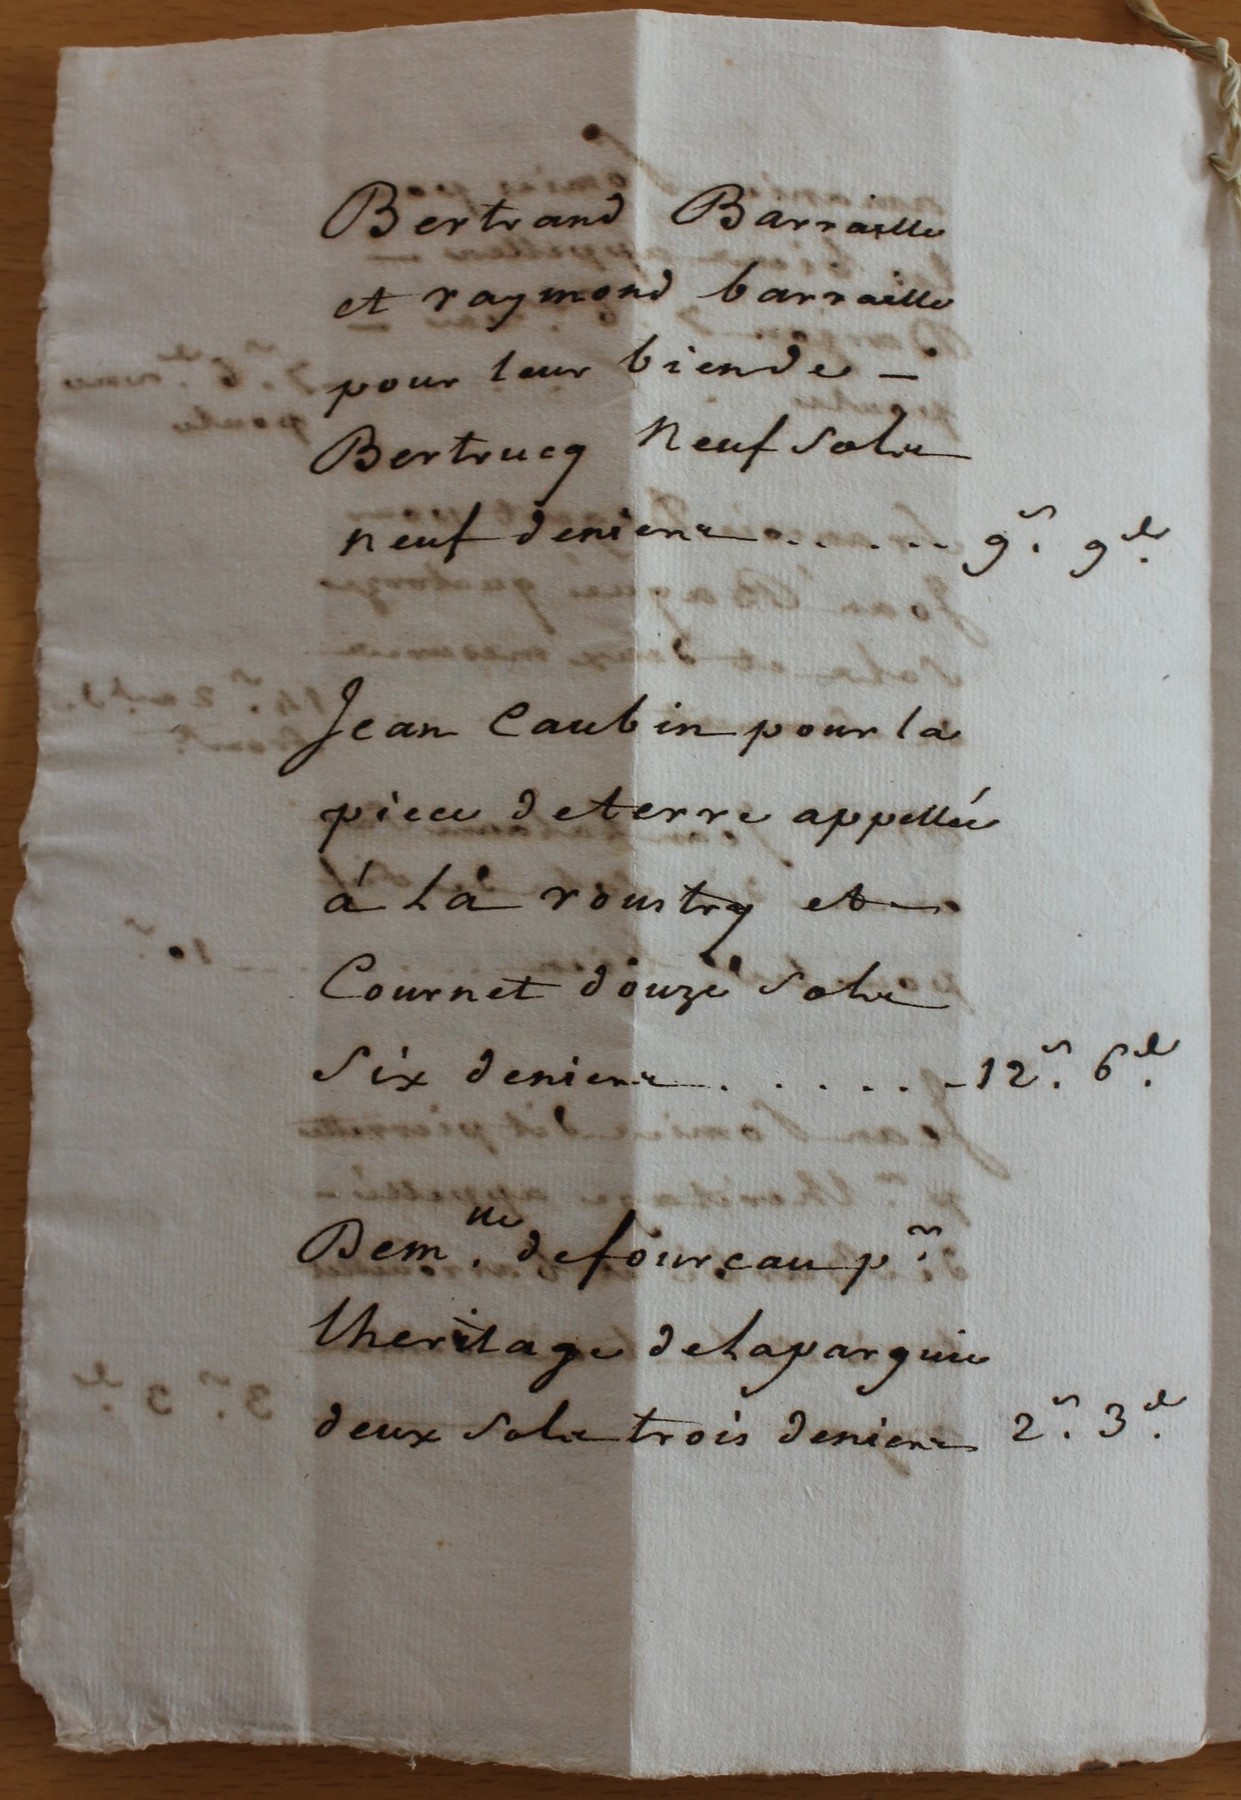 Bertrand Barraille
et raymond barraille
pour leur biende –
Bertrucq neuf sols
neuf deniers ...... 9s. 9d.
Jean Caubin pour la
piece deterre appellée
á La roustry et
Cournet douze sols
Six deniers ...... 12s. 6d.
Demlle. defourcau pr.
lheritage delaparguie
deux sols trois deniers 2s. 3d.